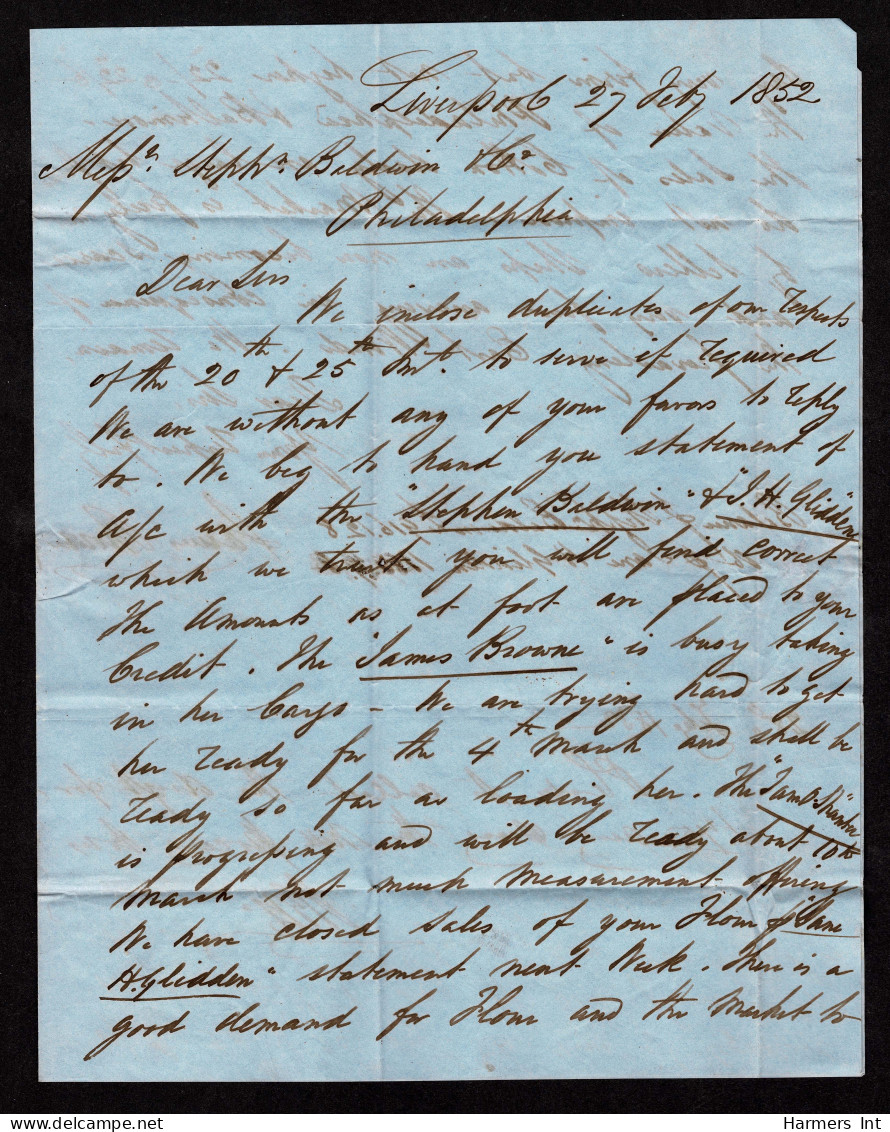 Liverpool 27 Feby 1852
Messrs. Stephn. Baldwin & Co
Philadelphia
Dear Sirs
We inclose duplicates of our respects
of the 20th & 25th Int. to serve if required
We are without any of your favors to reply
to. We beg to hand you statement of
A/c with the "Stephen Baldwin" & "J. H. Glidden"
which we trust you will find correct
The Amounts as at foot are placed to your
Credit. The "James Browne" is busy taking
in her Cargo - We are trying hard to get
her ready for the 4th March and shall be
ready so far as loading her. The "Tam O'Shanter"
is progressing and will be ready about 10th
March not much measurement offering
We have closed sales of your Flour p "Jane
H. Glidden" statement next Week. There is a
good demand for Flour and the Market to
Harmers Int